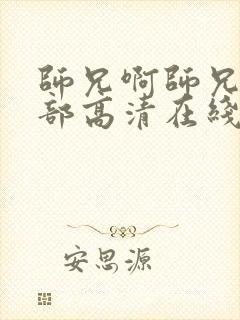 師兄啊師兄
部高清在綫
安思源